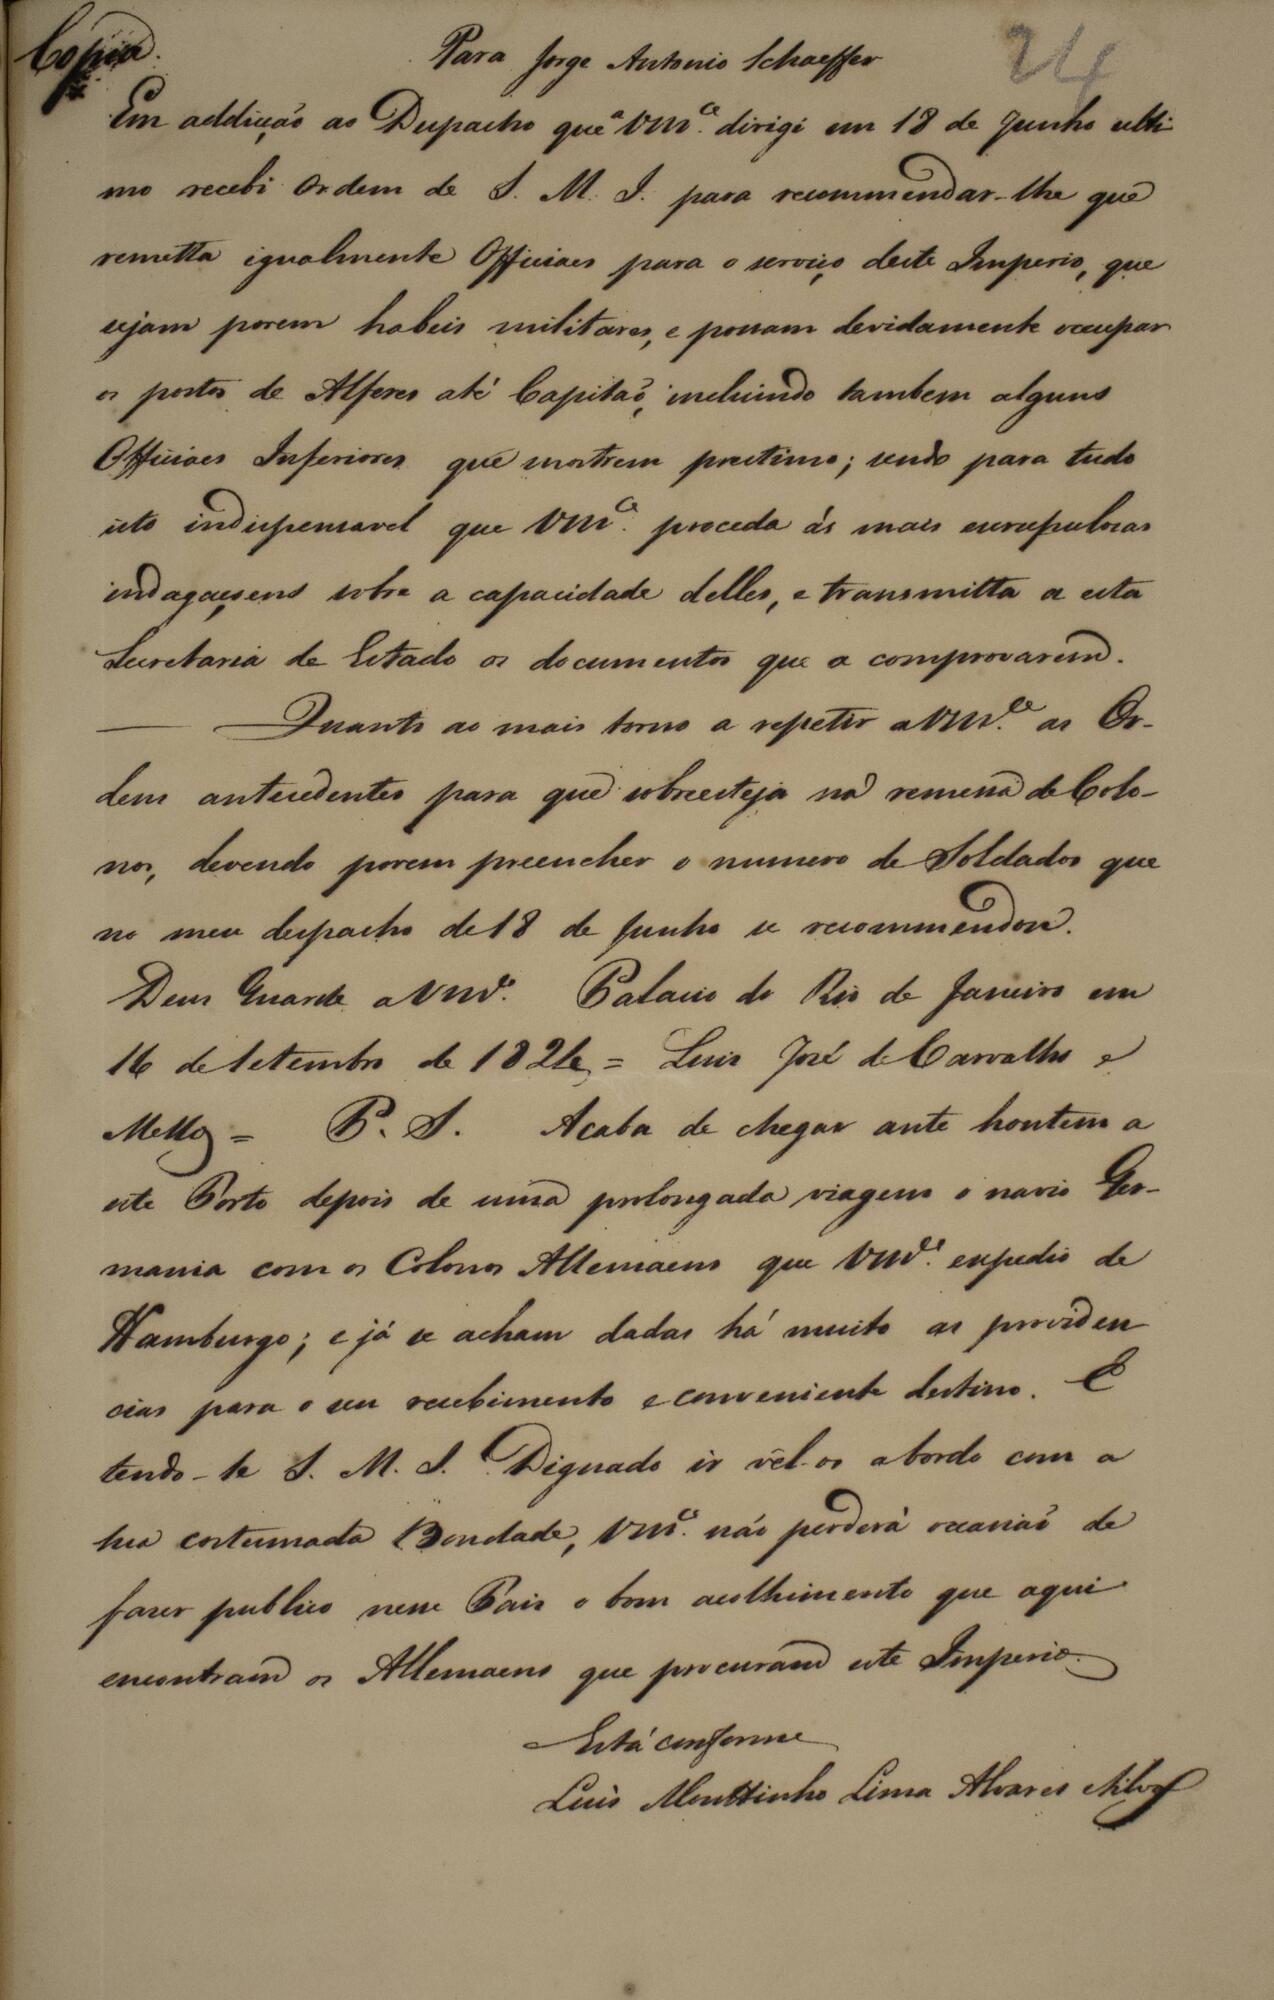 Cópia.
Para Jorge Antonio Schaeffer
24
Em addicção ao Despacho que a Vmce. dirigi em 18 de Junho ulti
mo recebi Ordem de S. M. I. para recommendar-lhe que
remetta igualmente Officiaes para o serviço deste Imperio, que
sejam porem habeis militares, e possam devidamente occupar
os postos de Alferes até Capitaõ, incluindo tambem alguns
Officiaes Inferiores que mostrem prestimo; sendo para tudo
isto indispensavel que Vmce. proceda ás mais escrupulosas
indagaçoens sobre a capacidade delles, e transmitta a esta
Secretaria de Estado os documentos que a comprovarem.
— Quanto ao mais torno a repetir a Vmce. as Or-
dens antecedentes para que sobreesteja na remessa de Colo-
nos, devendo porem preencher o numero de Soldados que
no meu despacho de 18 de Junho se recommendou.
Deus Guarde a Vmce. Palacio do Rio de Janeiro em
16 de Setembro de 1824 = Luis José de Carvalho e
Mello = P. S. Acaba de chegar ante hontem a
este Porto depois de uma prolongada viagem o navio Ger-
mania com os Colonos Allemaens que Vmce. expedio de
Hamburgo; e já se acham dadas há muito as providen
cias para o seu recebimento e conveniente destino. E
tendo-se S. M. I. Dignado ir vêl-os abordo com a
sua costumada Bondade, Vmce. não perderá occasiaõ de
fazer publico nesse Pais o bom acolhimento que aqui
encontram os Allemaens que procuram este Imperio.
Está conforme
Luis Mouttinho Lima Alvares Silva